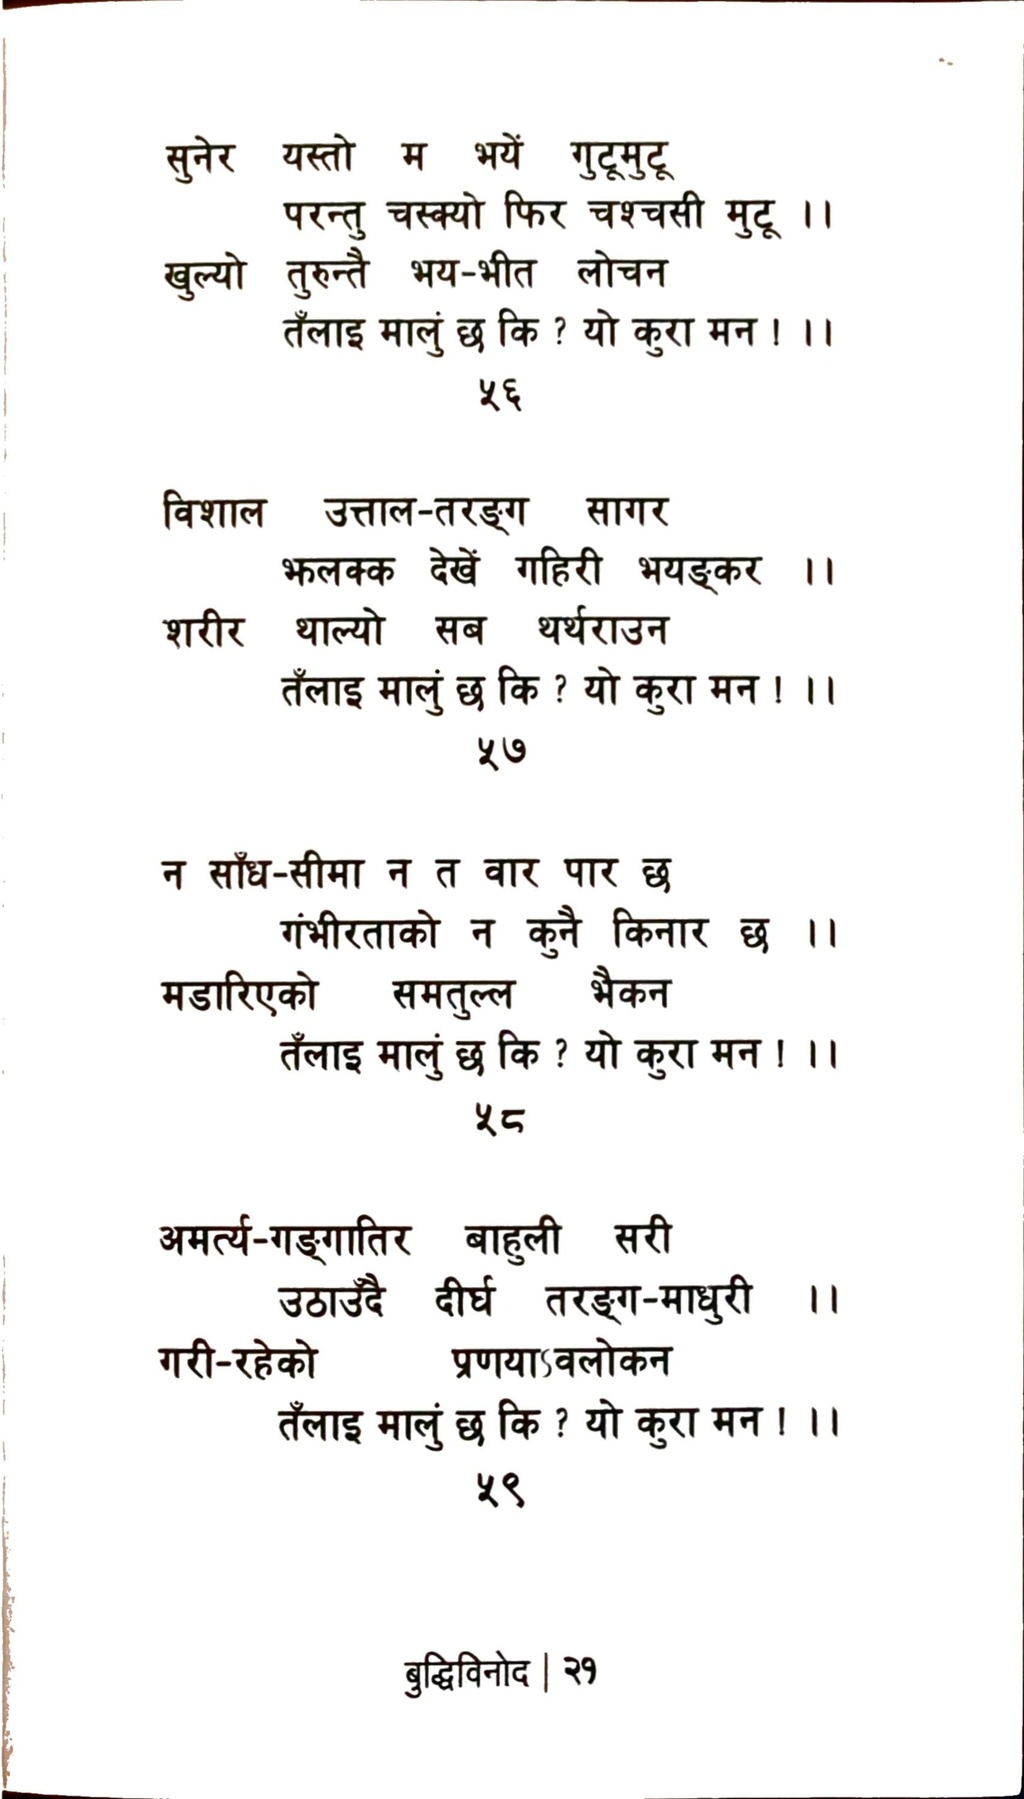 सुनेर यस्तो म भयें गुटूमुटू
परन्तु चस्क्यो फिर चश्चसी मुटू ।।
खुल्यो तुरुन्तै भय-भीत लोचन
तँलाइ मालुं छ कि ? यो कुरा मन ! ।।
५६
विशाल उत्ताल-तरङ्ग सागर
झलक्क देखें गहिरी भयङ्कर ।।
शरीर थाल्यो सब थर्थराउन
तँलाइ मालुं छ कि ? यो कुरा मन ! ।।
५७
न साँध-सीमा न त वार पार छ
गंभीरताको न कुनै किनार छ ।।
मडारिएको समतुल्ल भैकन
तँलाइ मालुं छ कि ? यो कुरा मन ! ।।
५८
अमर्त्य-गङ्गातिर बाहुली सरी
उठाउँदै दीर्घ तरङ्ग-माधुरी ।।
गरी-रहेको प्रणयाऽवलोकन
तँलाइ मालुं छ कि ? यो कुरा मन ! ।।
५९
बुद्धिविनोद | २१